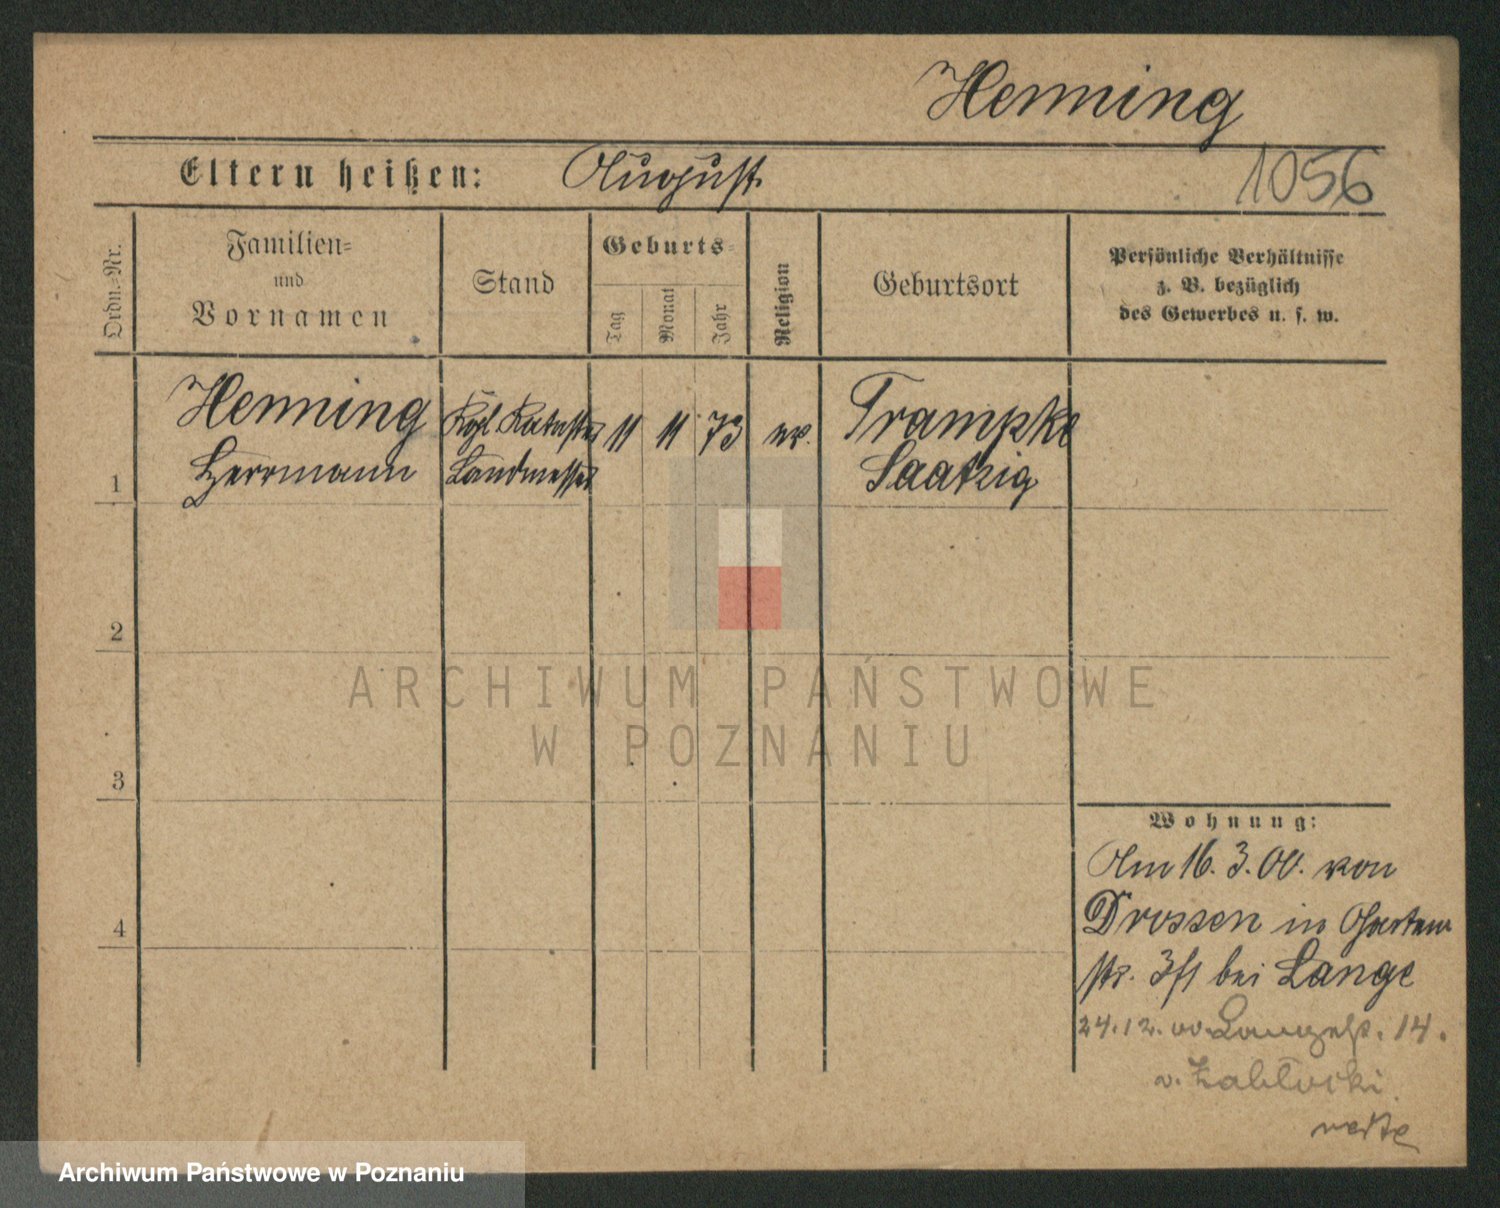 Henning
Eltern heißen: August
1056
Ordn.-Nr.
Familien-
und
Vornamen
Stand
Geburts-
Tag
Monat
Jahr
Religion
Geburtsort
Persönliche Verhältnisse
z. B. bezüglich
des Gewerbes u. s. w.
Henning
Herrmann
Kgl. Kataster
Landmesser
11 11 73 ev.
Trampke
Saatzig
1
2
ARCHIWUM PAŃSTWOWE
W POZNANIU
3
4
Wohnung:
Am 16. 3. 00. von
Drossen in Garten
str. 3f1 bei Lange
24.12.00. Langest. 14.
v. Zabłocki
verte
Archiwum Państwowe w Poznaniu